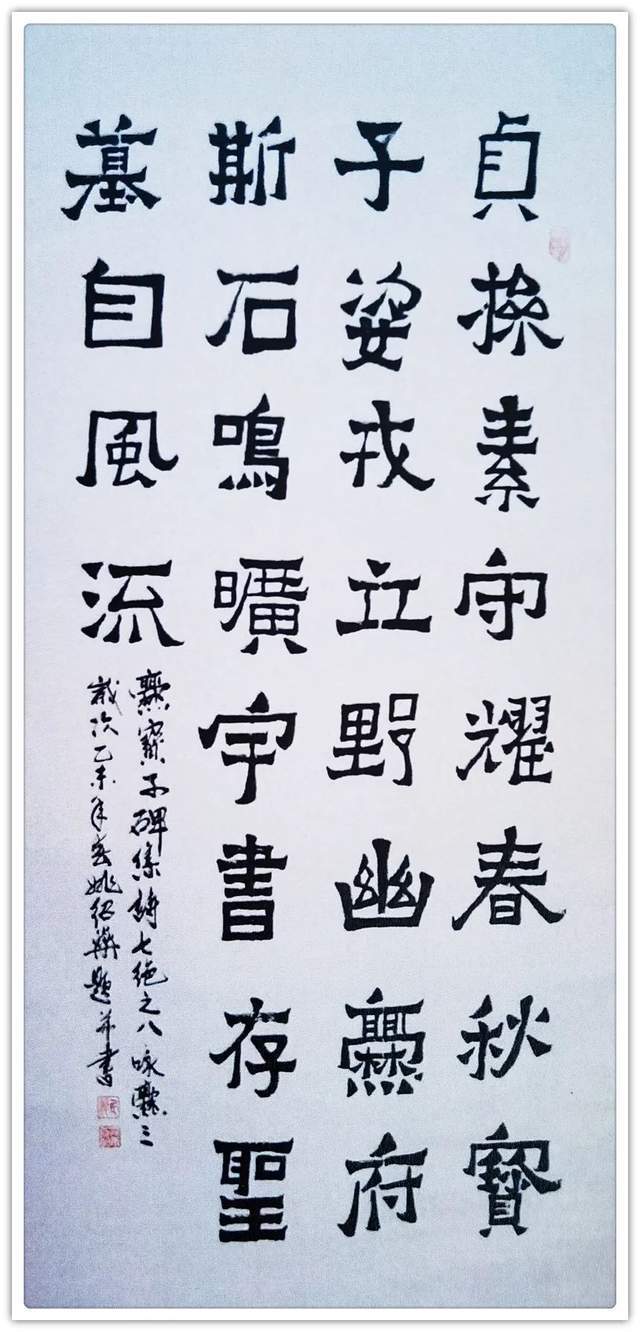 貞操素守耀春秋寶
子姿戎立野幽爨府
斯石鳴曠宇書存聖
墓自風流
爨寶子碑集詩七绝之八咏爨三
歲次乙未年春姚紹華题并書